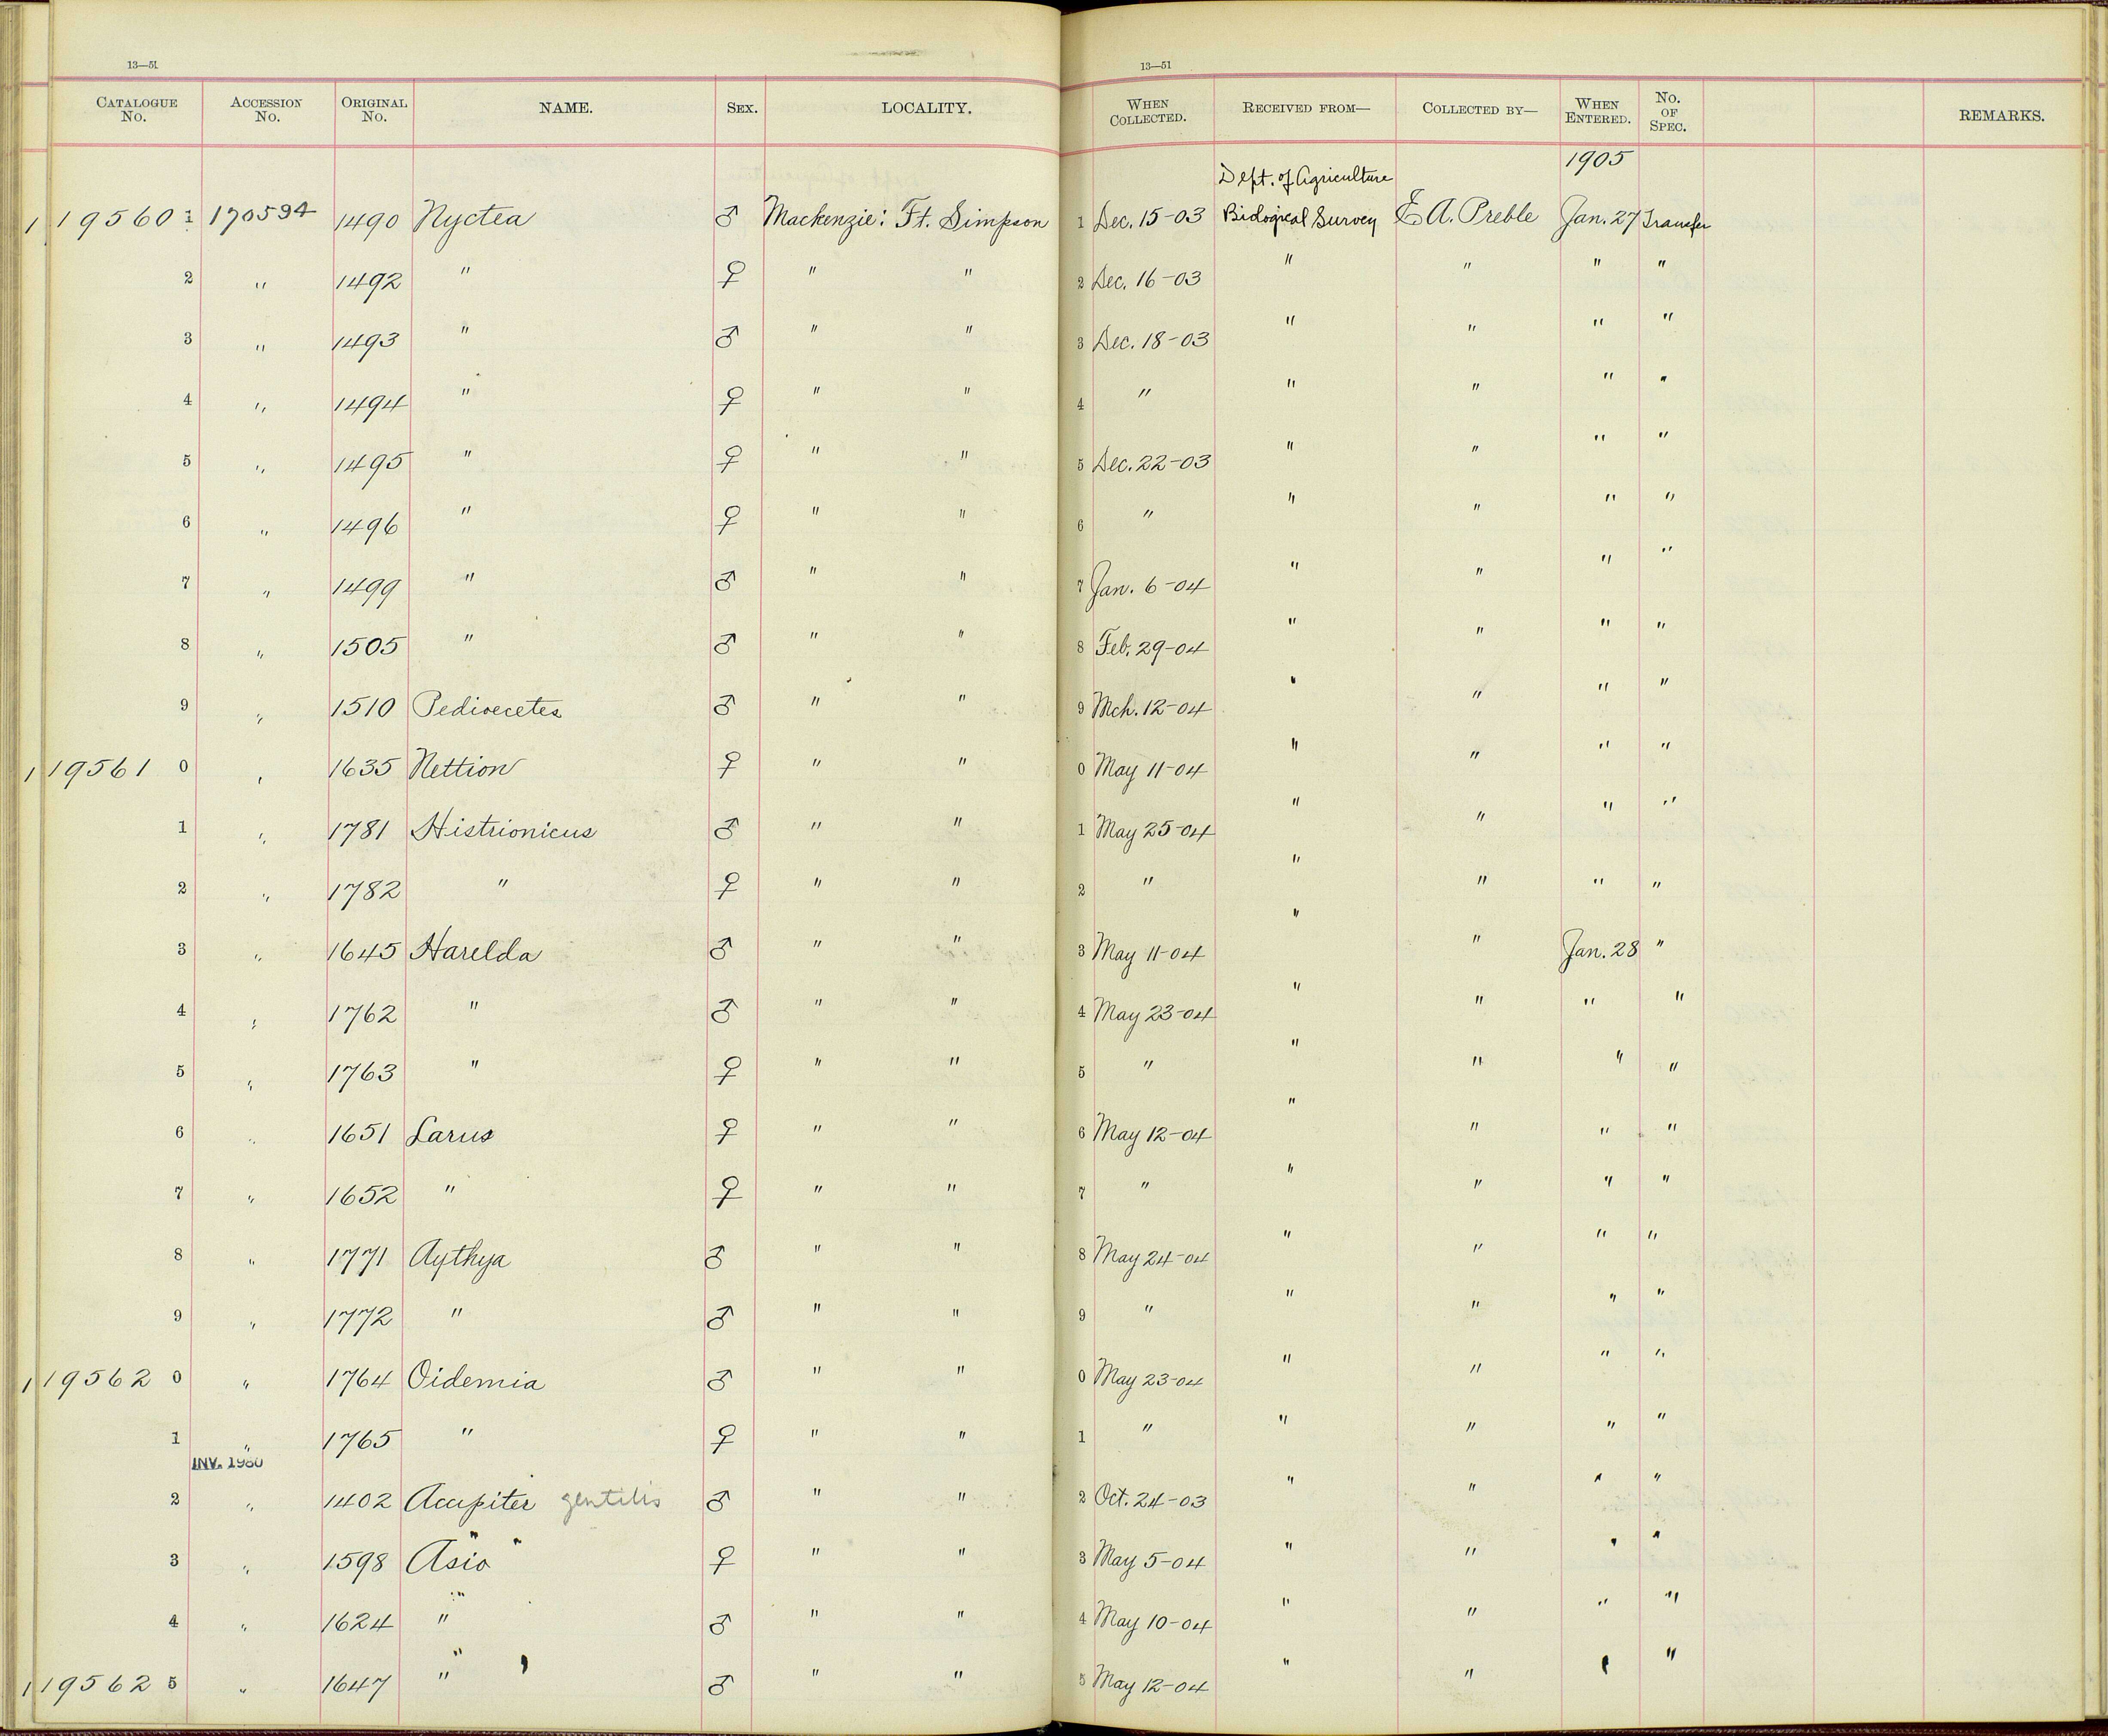 13—51 13—51
CATALOGUE No. ACCESSION No. ORIGINAL No. NAME. SEX. LOCALITY. WHEN COLLECTED. RECEIVED FROM— COLLECTED BY— WHEN ENTERED. No. OF SPEC. REMARKS.
1905
Dept. of Agriculture
119560 1 170594 1490 Nyctea ♂ Mackenzie: Ft. Simpson 1 Dec. 15-03 Biological Survey E A. Preble Jan. 27 Transfer
2 " 1492 " ♀ " " 2 Dec. 16-03 " " " "
3 " 1493 " ♂ " " 3 Dec. 18-03 " " " "
4 " 1494 " ♀ " " 4 " " " " "
5 " 1495 " ♀ " " 5 Dec. 22-03 " " " "
6 " 1496 " ♀ " " 6 " " " " "
7 " 1499 " ♂ " " 7 Jan. 6-04 " " " "
8 " 1505 " ♂ " " 8 Feb. 29-04 " " " "
9 " 1510 Pedioecetes ♂ " " 9 Mch. 12-04 " " " "
119561 0 " 1635 Nettion ♀ " " 0 May 11-04 " " " "
1 " 1781 Histrionicus ♂ " " 1 May 25-04 " " " "
2 " 1782 " ♀ " " 2 " " " " "
3 " 1645 Harelda ♂ " " 3 May 11-04 " " Jan. 28 "
4 " 1762 " ♂ " " 4 May 23-04 " " " "
5 " 1763 " ♀ " " 5 " " " " "
6 " 1651 Larus ♀ " " 6 May 12-04 " " " "
7 " 1652 " ♀ " " 7 " " " " "
8 " 1771 Aythya ♂ " " 8 May 24-04 " " " "
9 " 1772 " ♂ " " 9 " " " " "
119562 0 " 1764 Oidemia ♂ " " 0 May 23-04 " " " "
1 " 1765 " ♀ " " 1 " " " " "
INV. 1980
2 " 1402 Accipiter gentilis ♂ " " 2 Oct. 24-03 " " " "
3 " 1598 Asio ♀ " " 3 May 5-04 " " " "
4 " 1624 " ♂ " " 4 May 10-04 " " " "
119562 5 " 1647 " ♂ " " 5 May 12-04 " " " "